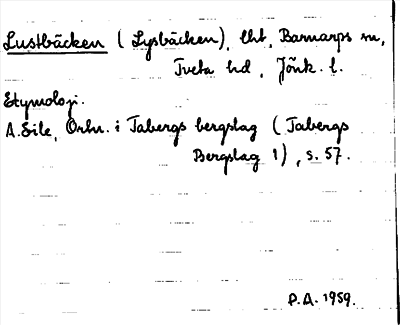 Lustbäcken (Lysbäcken), lht, Barnarps sn,
Tveta hd, Jönk. l.
Etymologi.
A. Eile, Ortn. i Tabergs bergslag (Tabergs
Bergslag 1), s. 57.
P.A. 1959.